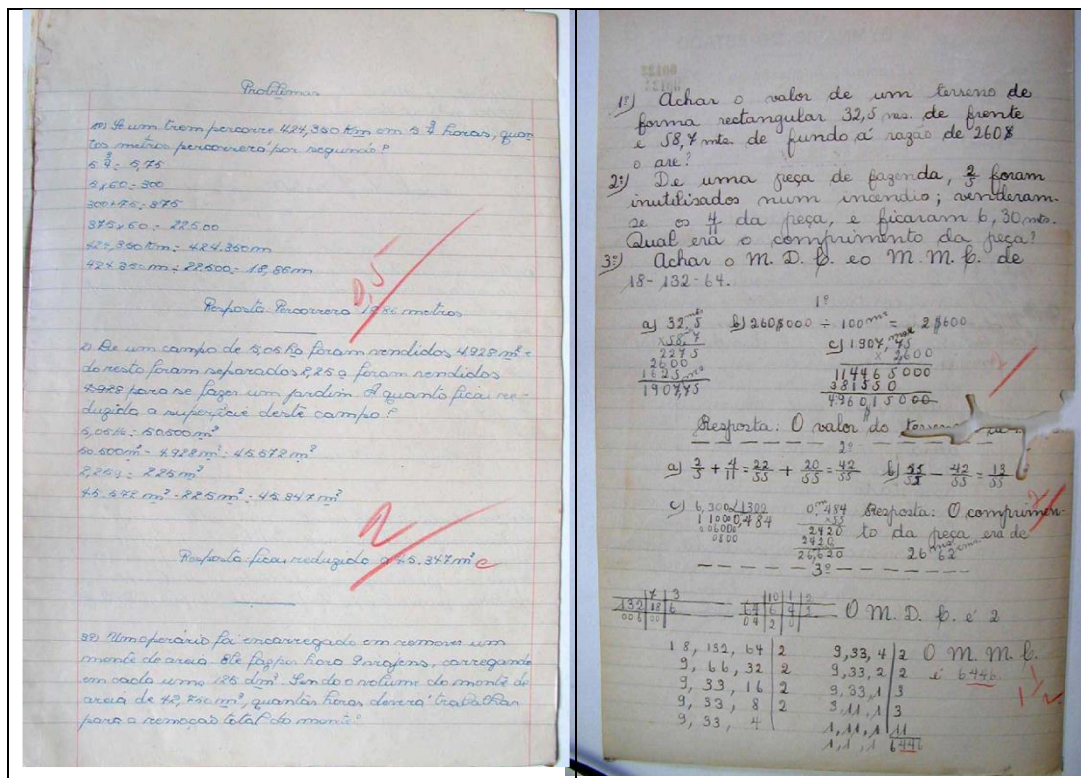 Problemas
1º) Se um trem percorre 424,350 Km em 5 3/4 horas, quan-
tos metros percorrerá por segundo?
5 3/4 = 5,75
5 x 60 = 300
300 + 75 = 375
375 x 60 = 22500
424,350 Km = 424.350 m
424.350 m ÷ 22.500 = 18,86 m
0,5
Resposta: Percorrerá 18,86 metros
2) De um campo de 5,05 ha foram vendidos 4.928 m² e
do resto foram separados 2,25 a foram vendidos
4.928 para se fazer um jardim. A quanto ficou re-
duzida a superficie deste campo?
5,05 ha = 50.500 m²
50.500 m² - 4.928 m² = 45.572 m²
2,25 a = 225 m²
45.572 m² - 225 m² = 45.347 m²
2
Resposta: ficou reduzido a 45.347 m² c
3º) Um operário foi encarregado em remover um
monte de areia. Ele faz por hora 9 viagens, carregando
em cada uma 125 dm³. Sendo o volume do monte de
areia de 42,750 m³, quantas horas deverá trabalhar
para a remoção total do monte?
1º) Achar o valor de um terreno de
forma rectangular 32,5 ms. de frente
e 58,7 mts. de fundo á razão de 260$
o are?
2º) De uma peça de fazenda, 2/5 foram
inutilisados num incendio; venderam-
se os 4/11 da peça, e ficaram 6,30 mts.
Qual era o comprimento da peça?
3º) Achar o M. D. C. e o M. M. C. de
18 - 132 - 64.
1º
a) 32,5 b) 260$000 ÷ 100 = 2$600
x 58,7 c) 1907,75
2275 x 2,600
2600 114465000
1625 381550
1907,75 4960,15000
Resposta: O valor do terreno
2º
a) 2/5 + 4/11 = 22/55 + 20/55 = 42/55 b) 55/55 - 42/55 = 13/55
c) 6,300 1300 0,484 Resposta: O comprimen-
11000 0,484 x 55 to da peça era de
06000 2420 26 62
0800 2420
26,620
3º
7 3 10 1 2
132 18 6 64 6 4 2 O M. D. C. é 2
006 00 04 2 0
18, 132, 64 2 9, 33, 4 2 O M. M. C.
9, 66, 32 2 9, 33, 2 2 é 6446
9, 33, 16 2 9, 33, 1 3
9, 33, 8 2 3, 11, 1 3
9, 33, 4 1, 11, 1 11
1, 1, 1 6446